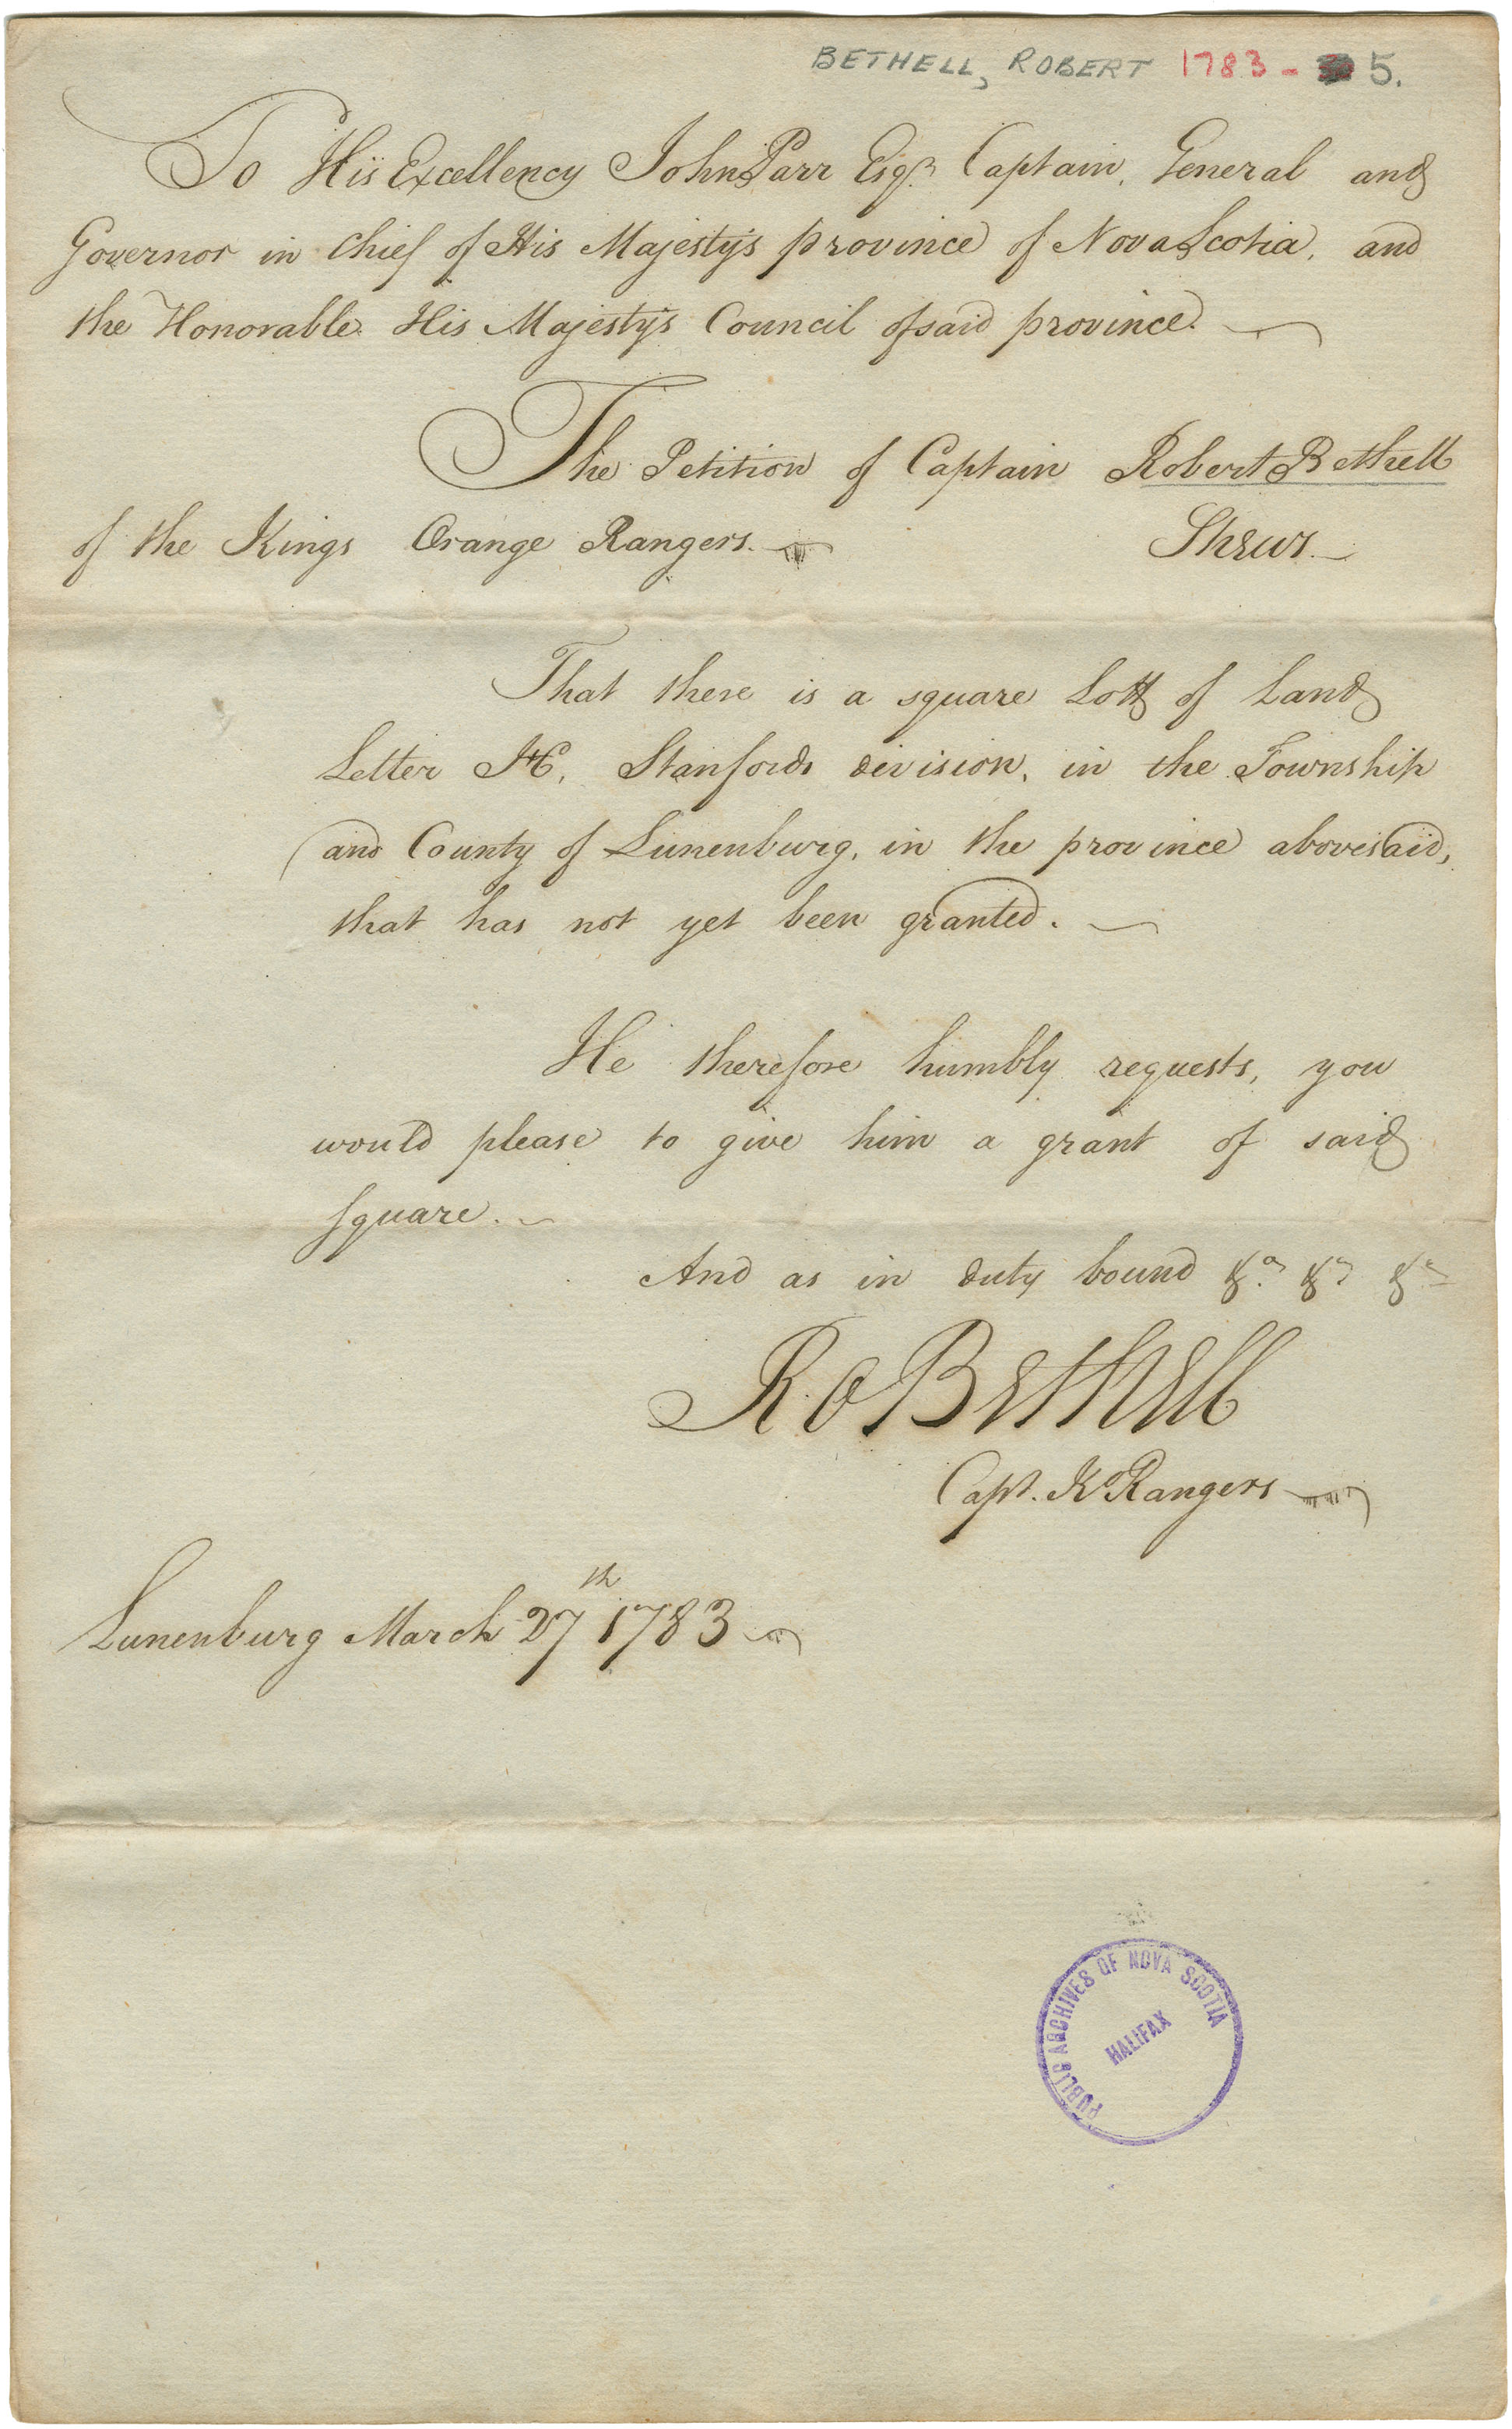 BETHELL, ROBERT 1783 - 5.
To His Excellency John Parr Esqr. Captain, General and
Governor in Chief of His Majesty's province of Nova Scotia, and
the Honorable His Majesty's Council of said province.
The Petition of Captain Robert Bethell
of the Kings Orange Rangers.
Shews
That there is a square Lott of Land
Letter H, Stanfords division, in the Township
and County of Lunenburg, in the province abovesaid,
that has not yet been granted.
He therefore humbly requests, you
would please to give him a grant of said
square.
And as in duty bound &a. &a &a
Ro Bethell
Capt. K Rangers
Lunenburg March 27th 1783
PUBLIC ARCHIVES OF NOVA SCOTIA
HALIFAX